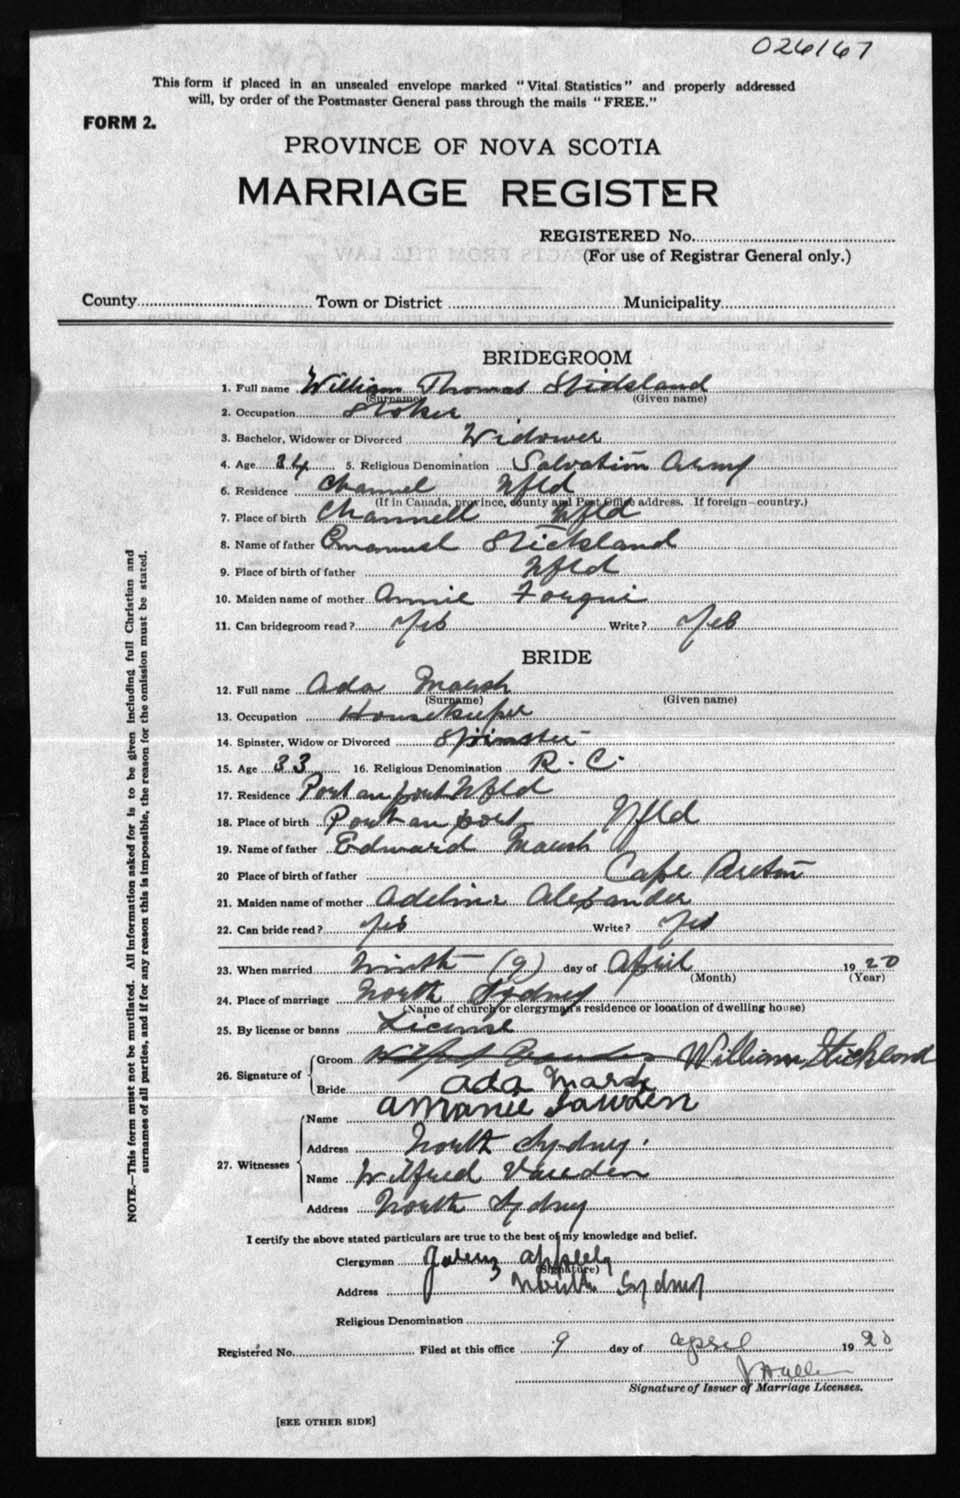 026167
This form if placed in an unsealed envelope marked "Vital Statistics" and properly addressed
will, by order of the Postmaster General pass through the mails "FREE."
FORM 2.
PROVINCE OF NOVA SCOTIA
MARRIAGE REGISTER
REGISTERED No.
(For use of Registrar General only.)
County Town or District Municipality
BRIDEGROOM
1. Full name William Thomas Stickland
(Surname) (Given name)
2. Occupation Stoker
3. Bachelor, Widower or Divorced Widower
4. Age 34 5. Religious Denomination Salvation Army
6. Residence Channel Nfld
(If in Canada, province, county and Post Office address. If foreign—country.)
7. Place of birth Channell Nfld
8. Name of father Emanuel Stickland
9. Place of birth of father Nfld
10. Maiden name of mother Annie
11. Can bridegroom read? Yes Write? Yes
BRIDE
12. Full name Ada Marsh
(Surname) (Given name)
13. Occupation Housekeeper
14. Spinster, Widow or Divorced Spinster
15. Age 33 16. Religious Denomination R. C.
17. Residence Port au port Nfld
18. Place of birth Port au port Nfld
19. Name of father Edward Marsh
20 Place of birth of father Cape Breton
21. Maiden name of mother Adeline Alexander
22. Can bride read? Yes Write? Yes
23. When married Ninth (9) day of April 1920
(Month) (Year)
24. Place of marriage North Sydney
(Name of church or clergyman's residence or location of dwelling house)
25. By license or banns License
26. Signature of Groom William Stickland
Bride Ada Marsh
27. Witnesses Name
Address North Sydney.
Name Wilfred
Address North Sydney
I certify the above stated particulars are true to the best of my knowledge and belief.
Clergyman
(Signature)
Address North Sydney
Religious Denomination
Registered No. Filed at this office 9 day of April 1920
Signature of Issuer of Marriage Licenses.
[SEE OTHER SIDE]
NOTE.—This form must not be mutilated. All information asked for is to be given including full Christian and
surnames of all parties, and if for any reason this is impossible, the reason for the omission must be stated.